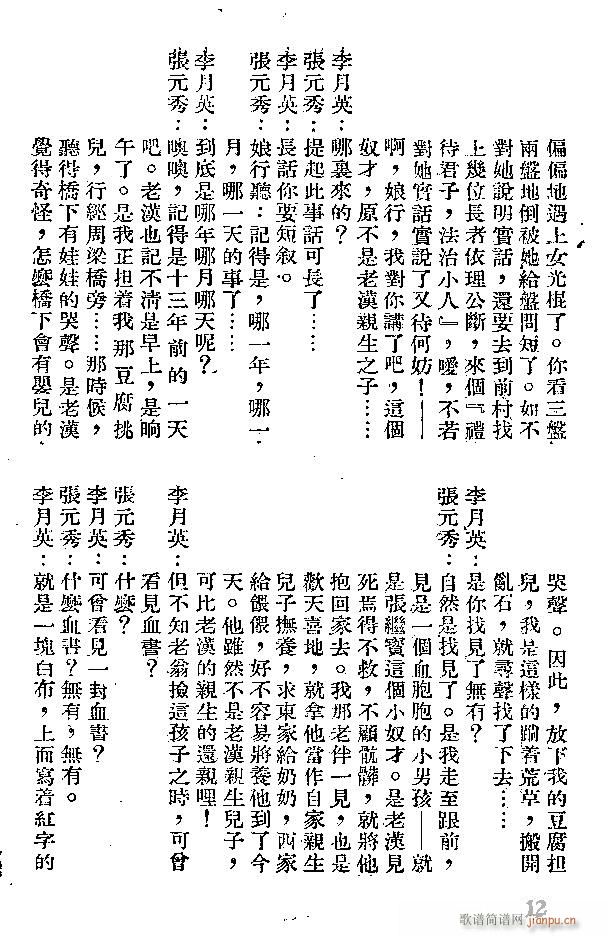 偏偏地遇上女光棍了。你看三盤
兩盤地倒被她給盤問短了。如不
對她說明實話，還要去到前村找
上幾位長者依理公斷，來個『禮
待君子，法治小人』，噯，不若
對她實話實說了又待何妨！——
啊，娘行，我對你講了吧，這個
奴才，原不是老漢親生之子……
李月英：哪裏來的？
張元秀：提起此事話可長了……
李月英：長話你要短敘。
張元秀：娘行聽：記得是，哪一年，哪一
月，哪一天的事了……
李月英：到底是哪年哪月哪天呢？
張元秀：噢噢，記得是十三年前的一天
吧。老漢也記不清是早上，是晌
午了。是我正担着我那豆腐挑
兒，行經周梁橋旁……那時候，
聽得橋下有娃娃的哭聲。是老漢
覺得奇怪，怎麼橋下會有嬰兒的
哭聲。因此，放下我的豆腐担
兒，我是這樣的蹚着荒草，搬開
亂石，就尋聲找了下去……
李月英：是你找見了無有？
張元秀：自然是找見了。是我走至跟前，
見是一個血胞胞的小男孩——就
是張繼寶這個小奴才。是老漢見
死焉得不救，不顧骯髒，就將他
抱回家去。我那老伴一見，也是
歡天喜地，就拿他當作自家親生
兒子撫養，求東家給奶奶，西家
給餵餵，好不容易將養他到了今
天。他雖然不是老漢親生兒子，
可比老漢的親生的還親哩！
李月英：但不知老翁撿這孩子之時，可曾
看見血書？
張元秀：什麼？
李月英：可曾看見一封血書？
張元秀：什麼血書？無有，無有。
李月英：就是一塊白布，上面寫着紅字的
12
歌谱简谱网
jianpu.cn